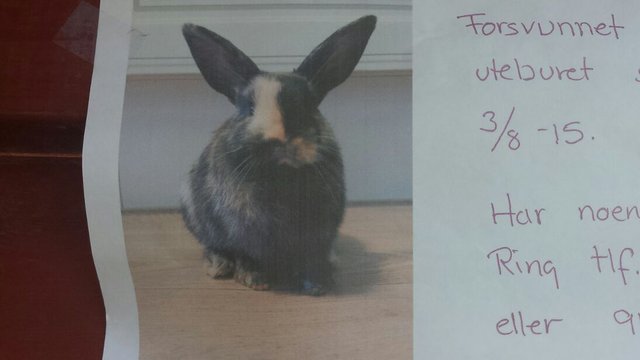 Forsvunnet
uteburet
3/8 -15.
Har noen
Ring tlf.
eller